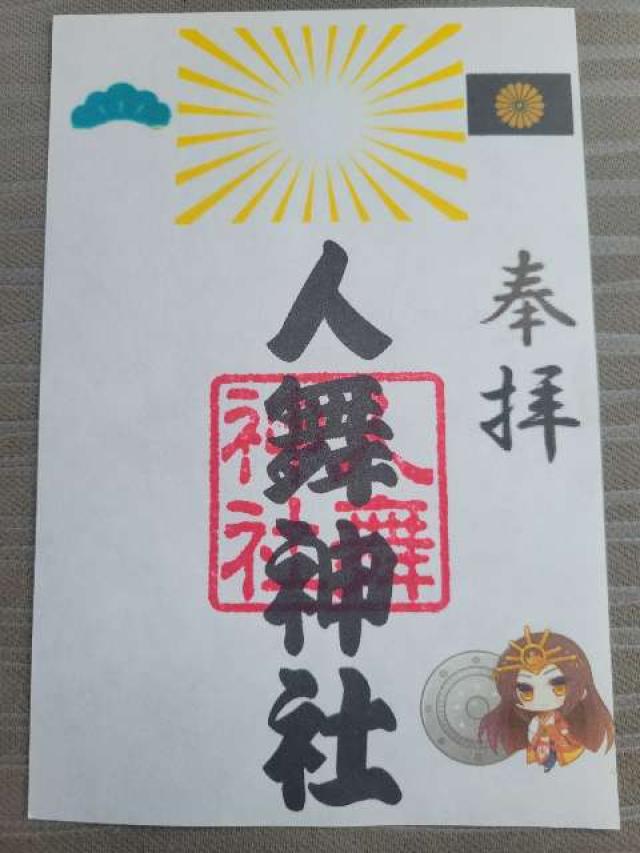 奉拝
人舞神社
人舞
神社